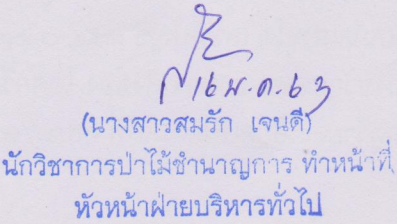 16 ม.ค. 63
(นางสาวสมรัก เจนดี)
นักวิชาการป่าไม้ชำนาญการ ทำหน้าที่
หัวหน้าฝ่ายบริหารทั่วไป